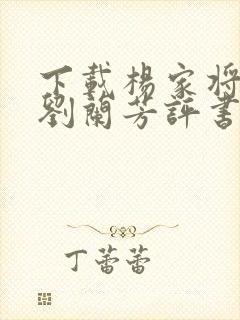 下載楊家將
劉蘭芳評書
丁蕾蕾